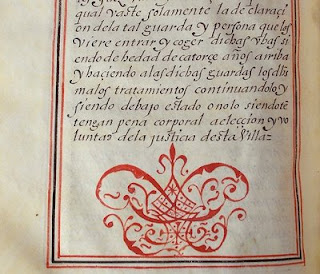 qual vaste solamente la de claraçi
on dela tal guarda y persona que los
viere entrar y coger dichas vbas si
endo de hedad de catorçe años arriba
y haciendo alas dichas guardas los dhi
malos tratamientos continuandolo y
siendo debajo estado o nolo siendo tē
tengan pena corporal a eleccion y vo
luntad dela justicia desta Villa